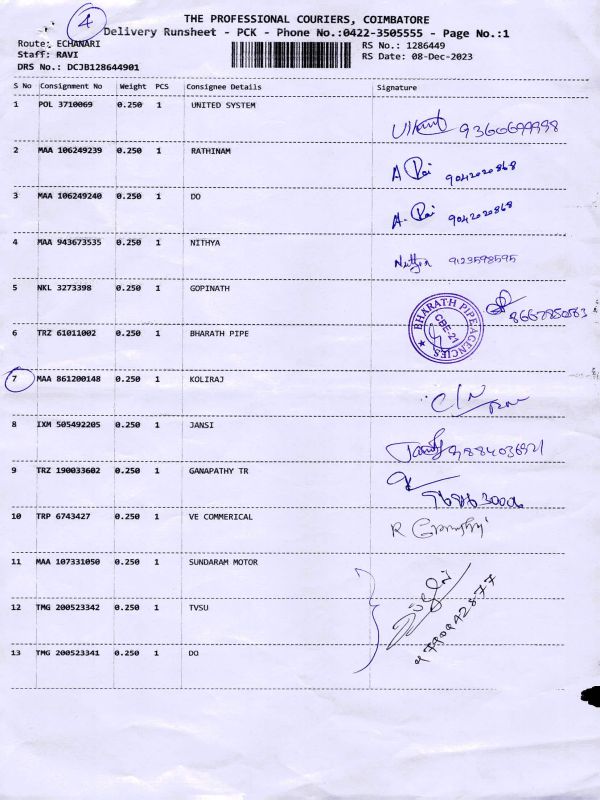 4
THE PROFESSIONAL COURIERS, COIMBATORE
Delivery Runsheet - PCK - Phone No.:0422-3505555 - Page No.:1
Route: ECHANARI
RS No.: 1286449
Staff: RAVI
RS Date: 08-Dec-2023
DRS No.: DCJB128644901
S No Consignment No Weight PCS Consignee Details Signature
1 POL 3710069 0.250 1 UNITED SYSTEM
2 MAA 106249239 0.250 1 RATHINAM
9042020868
3 MAA 106249240 0.250 1 DO
9042020868
4 MAA 943673535 0.250 1 NITHYA
9123598595
5 NKL 3273398 0.250 1 GOPINATH
BHARATH PIPE AGENCIES
CBE-21
6 TRZ 61011002 0.250 1 BHARATH PIPE
7 MAA 861200148 0.250 1 KOLIRAJ
8 IXM 505492205 0.250 1 JANSI
9 TRZ 190033602 0.250 1 GANAPATHY TR
10 TRP 6743427 0.250 1 VE COMMERICAL
11 MAA 107331050 0.250 1 SUNDARAM MOTOR
12 TMG 200523342 0.250 1 TVSU
13 TMG 200523341 0.250 1 DO